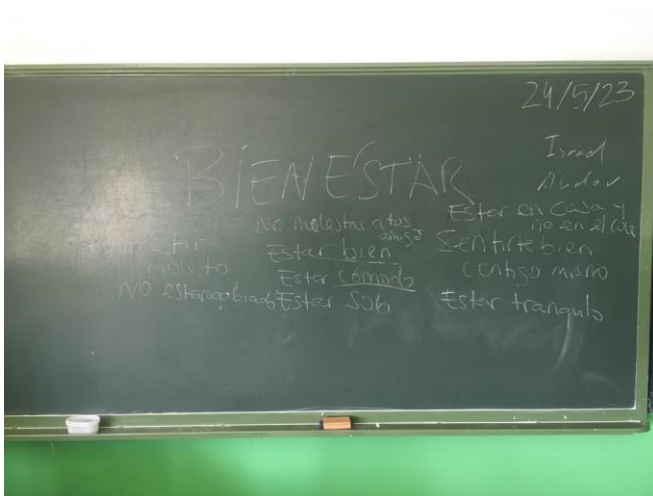 24/5/23
Israel
BIENESTAR
No molestar a tus
amigos
Estar bien
Estar cómodo
Estar solo
estar
molesto
NO estar agobiado
Estar en casa y
no en el cole
Sentirte bien
contigo mismo
Estar tranquilo